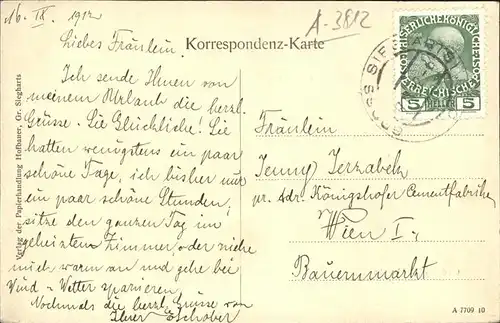 16. IX. 1912
A-3812
Liebes Fräulein.
Korrespondenz-Karte
Ich sende Ihnen von
meinem Urlaub die herzl.
Grüsse. Sie Glückliche! Sie
hatten wenigstens ein paar
schöne Tage, ich bisher nur
ein paar schöne Stunden,
sitze den ganzen Tag im
geheizten Zimmer, oder ziehe
mich warm an und gehe bei
Wind-Wetter spazieren.
Nochmals die herzl. Grüsse von
Ihrer Eschober
Verlag der Papierhandlung Hofbauer, Gr. Siegharts
GROSS SIEGHARTS
5 HELLER 5
Fräulein
Jenny Jerzabek
pr. Adr. Königshofer Cementfabrike
Wien I.,
Bauernmarkt
A 7709 10